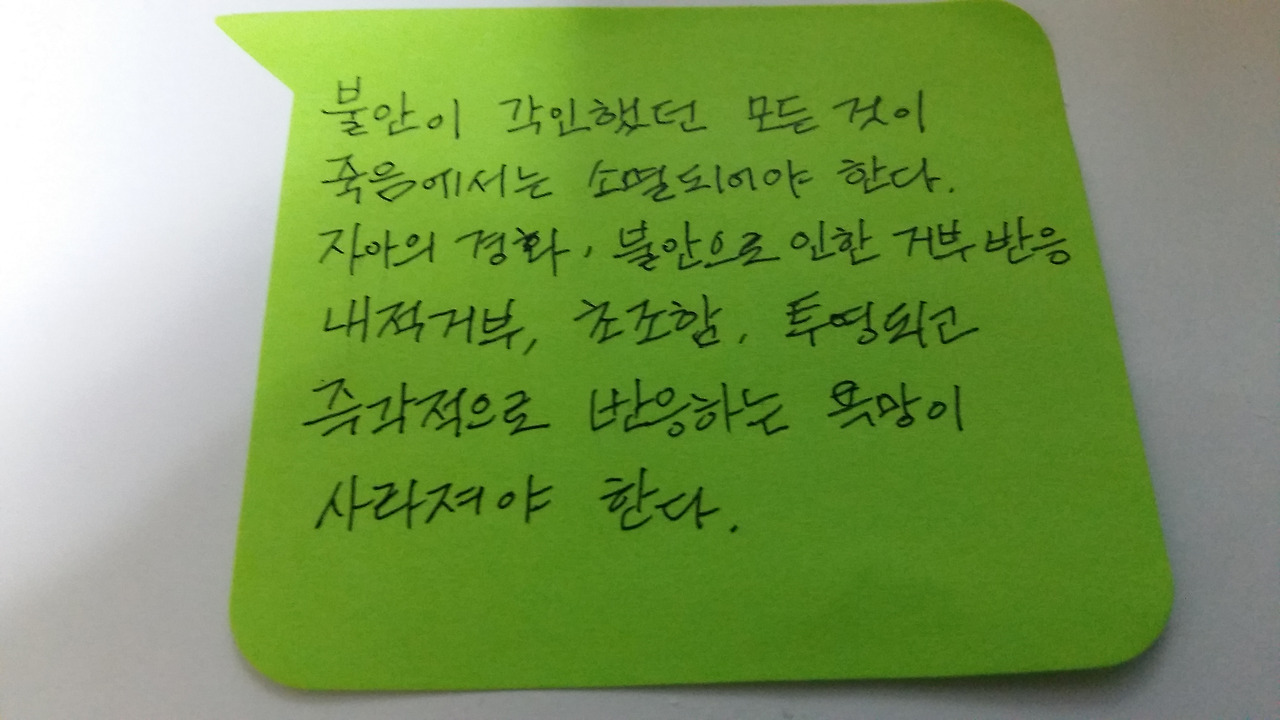 불안이 각인했던 모든 것이
죽음에서는 소멸되어야 한다.
자아의 경화, 불안으로 인한 거부반응
내적거부, 초조함, 투영되고
즉각적으로 반응하는 욕망이
사라져야 한다.